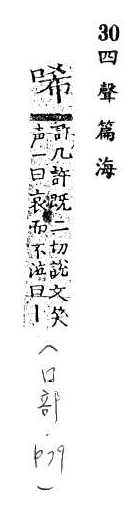 30四聲篇海
唏
許几許既二切說文笑
声一曰哀而不泣曰丨
(口部．P79)